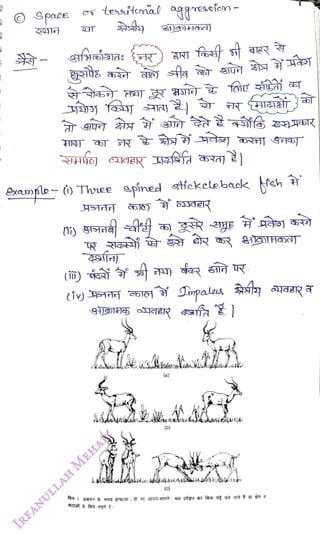 © Space or territorial aggression -
स्थान या क्षेत्रीय आक्रामकता
जैसे - अधिकांशतः नर द्वारा किसी भी बाहर से
घुसपैठ करने वाले जीव को अपने क्षेत्र में प्रवेश
से रोकने तथा दूर भगाने के लिए संकेतों का
प्रयोग किया जाता है। ये नर मादाओं को
तो अपने क्षेत्र में आने देते हैं क्योंकि इस प्रकार
मादा का नर के क्षेत्र में प्रवेश करना उनका
समर्पण व्यवहार प्रदर्शित करता है।
Example - (i) Three spined stickcleback fish में
प्रजनन काल में व्यवहार
(ii) अजनबी चींटी का दूसरे समूह में प्रवेश करने
पर सदस्यों द्वारा उसे घेर कर आक्रामकता
दर्शाना
(iii) बंदरों में भी नया बंदर आने पर
(iv) प्रजनन काल में Impalas क्षेत्रीय व्यवहार व
आक्रामक व्यवहार दर्शाते हैं।
(a)
(b)
(c)
IRFANULLAH MEHAR
चित्र : प्रजनन के समय इम्पाला : दो नर आमने-सामने; बल प्रदर्शन कर बिना लड़े चले जाते हैं या क्षेत्र व
मादाओं के लिये लड़ते हैं।